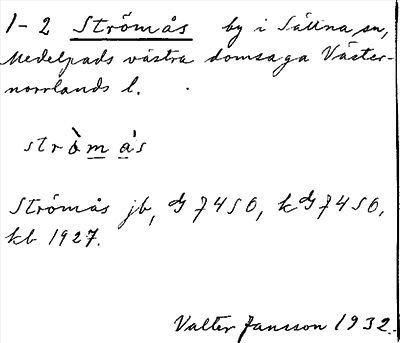 1-2 Strömås by i Sättna sn,
Medelpads västra domsaga Väster-
norrlands l.
strò̀m ås
Strömås jb, G 7450, kG 7450,
kb 1927.
Valter Jansson 1932.